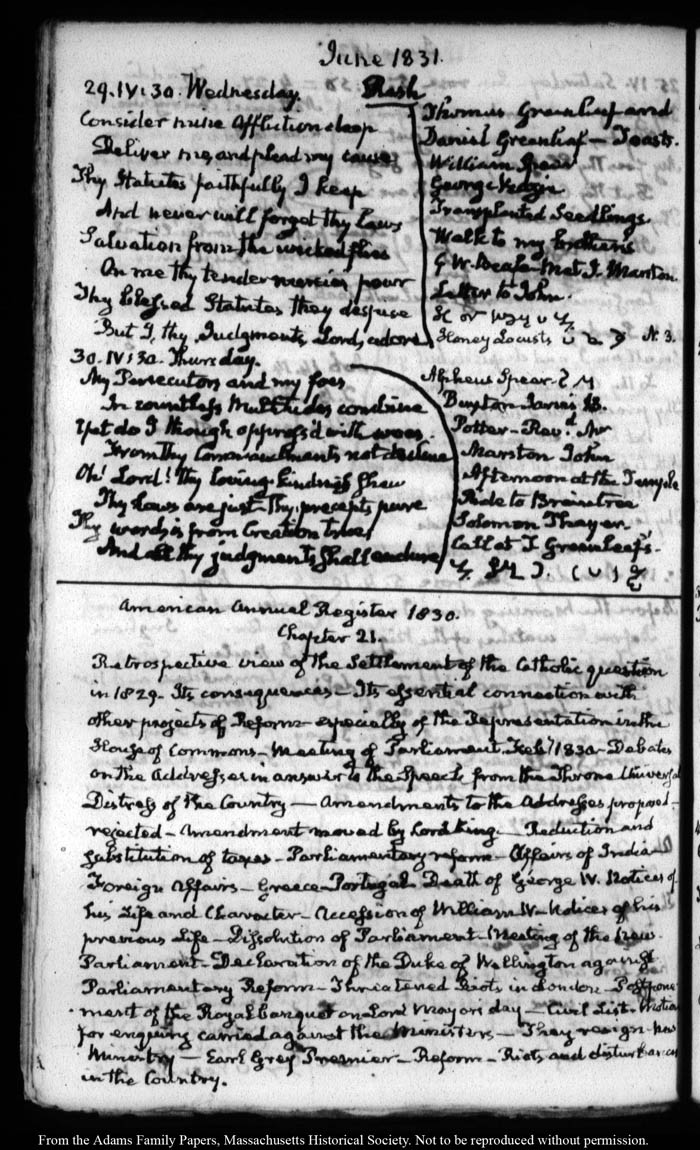 June 1831.
29. IV:30. Wednesday.
Consider mine Affliction deep
Deliver me, and plead my cause;
Thy Statutes faithfully I keep
And never will forget thy Laws
Salvation from the wicked flies
On me thy tender mercies pour
Thy blessed Statutes they despise
But I, thy Judgments, Lord, adore.
Rash
Thomas Greenleaf and
Daniel Greenleaf — Toasts.
William Spear
George
Transplanted Seedlings
Walk to my brother's
G W. Beale Met J. Marston.
Letter to John.
Honey Locusts N. 3.
30. IV:30. Thursday.
My Persecutors and my foes
In countless Multitudes combine
Yet do I though oppress'd with woes
From thy Commandments not decline
Oh! Lord! thy loving kindness shew
Thy Laws are just—thy precepts pure
Thy word is from Creation true
And all thy judgments shall endure
Alpheus Spear
Buxton Jarvis B.
Potter—Revd. Mr
Marston John
Afternoon at the Temple
Ride to Braintree
Solomon Thayer
Call at T Greenleaf's.
American Annual Register 1830.
Chapter 21.
Retrospective view of the Settlement of the Catholic question
in 1829. Its consequences—Its essential connection with
other projects of Reform—especially of the Representation in the
House of Commons—Meeting of Parliament Feby 1830—Debates
on the Addresses in answer to the Speech from the Throne Universal
Distress of the Country — Amendments to the Addresses proposed—
rejected—Amendment moved by Lord King.—Reduction and
substitution of taxes—Parliamentary reform—Affairs of India—
Foreign Affairs—Greece—Portugal Death of George IV. Notices of
his Life and Character—Accession of William IV—Notices of his
previous Life—Dissolution of Parliament—Meeting of the New
Parliament—Declaration of the Duke of Wellington against
Parliamentary Reform—Threatened Riots in London—Postpone-
ment of the Royal banquet on Lord Mayor's day—Civil List—Motion
for enquiry carried against the Ministers—They resign—New
Ministry — Earl Grey Premier—Reform—Riots and disturbances
in the Country.
From the Adams Family Papers, Massachusetts Historical Society. Not to be reproduced without permission.